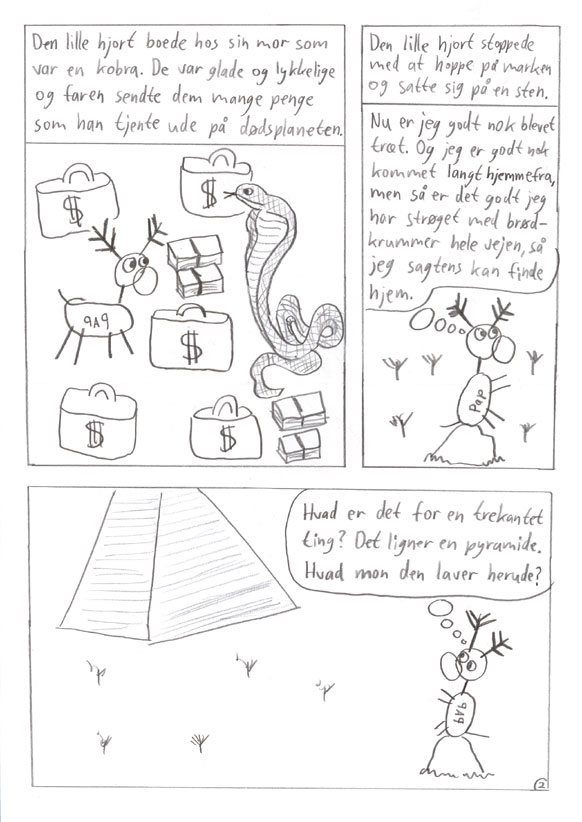 Den lille hjort boede hos sin mor som
var en kobra. De var glade og lykkelige
og faren sendte dem mange penge
som han tjente ude på dødsplaneten.
$
$
PAP
$
$
$
Den lille hjort stoppede
med at hoppe på marken
og satte sig på en sten.
Nu er jeg godt nok blevet
træt. Og jeg er godt nok
kommet langt hjemmefra,
men så er det godt jeg
har strøget med brød-
krummer hele vejen, så
jeg sagtens kan finde
hjem.
Pap
Hvad er det for en trekantet
ting? Det ligner en pyramide.
Hvad mon den laver herude?
PAP
2